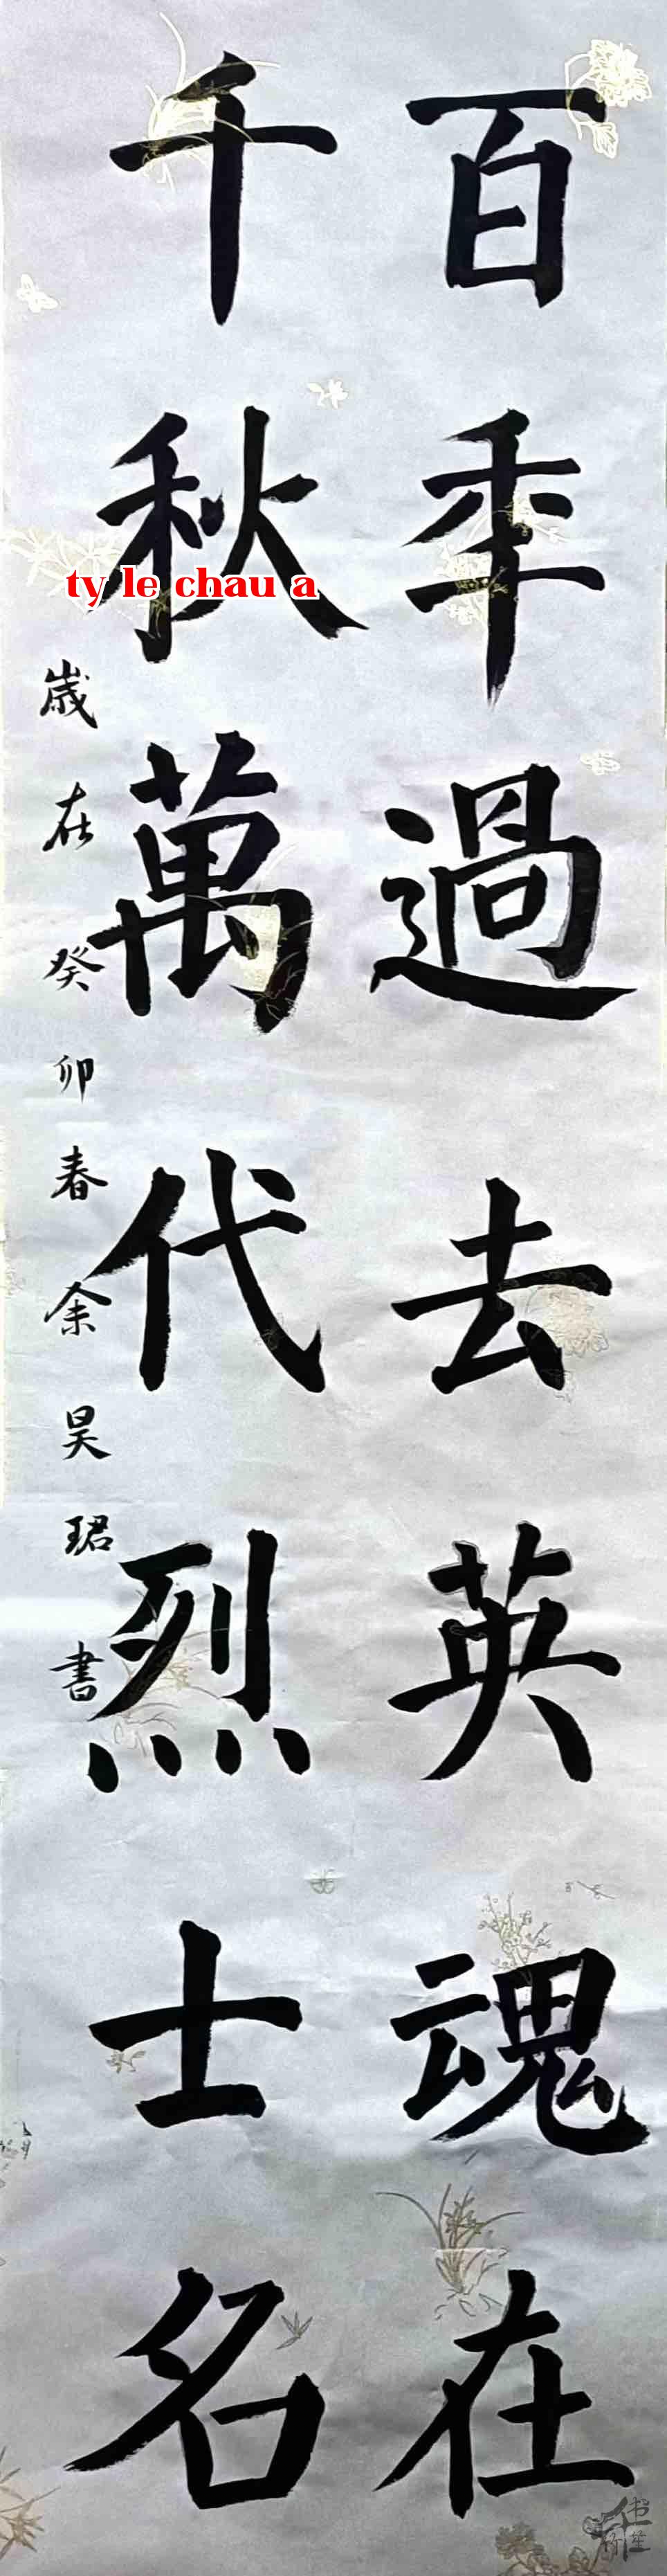 百年過去英魂在
千秋萬代烈士名
歲在癸卯春余昊珺書
ty le chau a